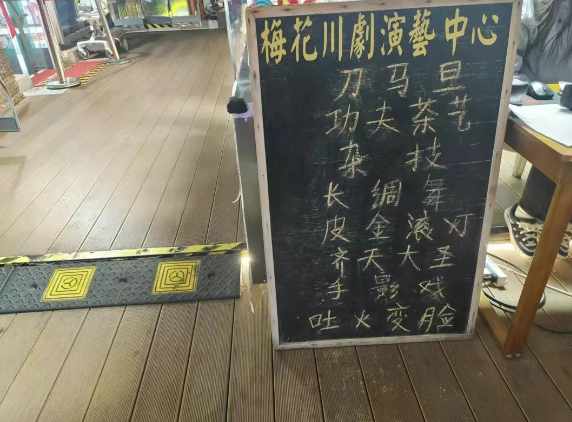 梅花川劇演藝中心
刀马旦
功夫茶艺
杂技
长绸舞
皮金滚灯
齐天大圣
手影戏
吐火变脸